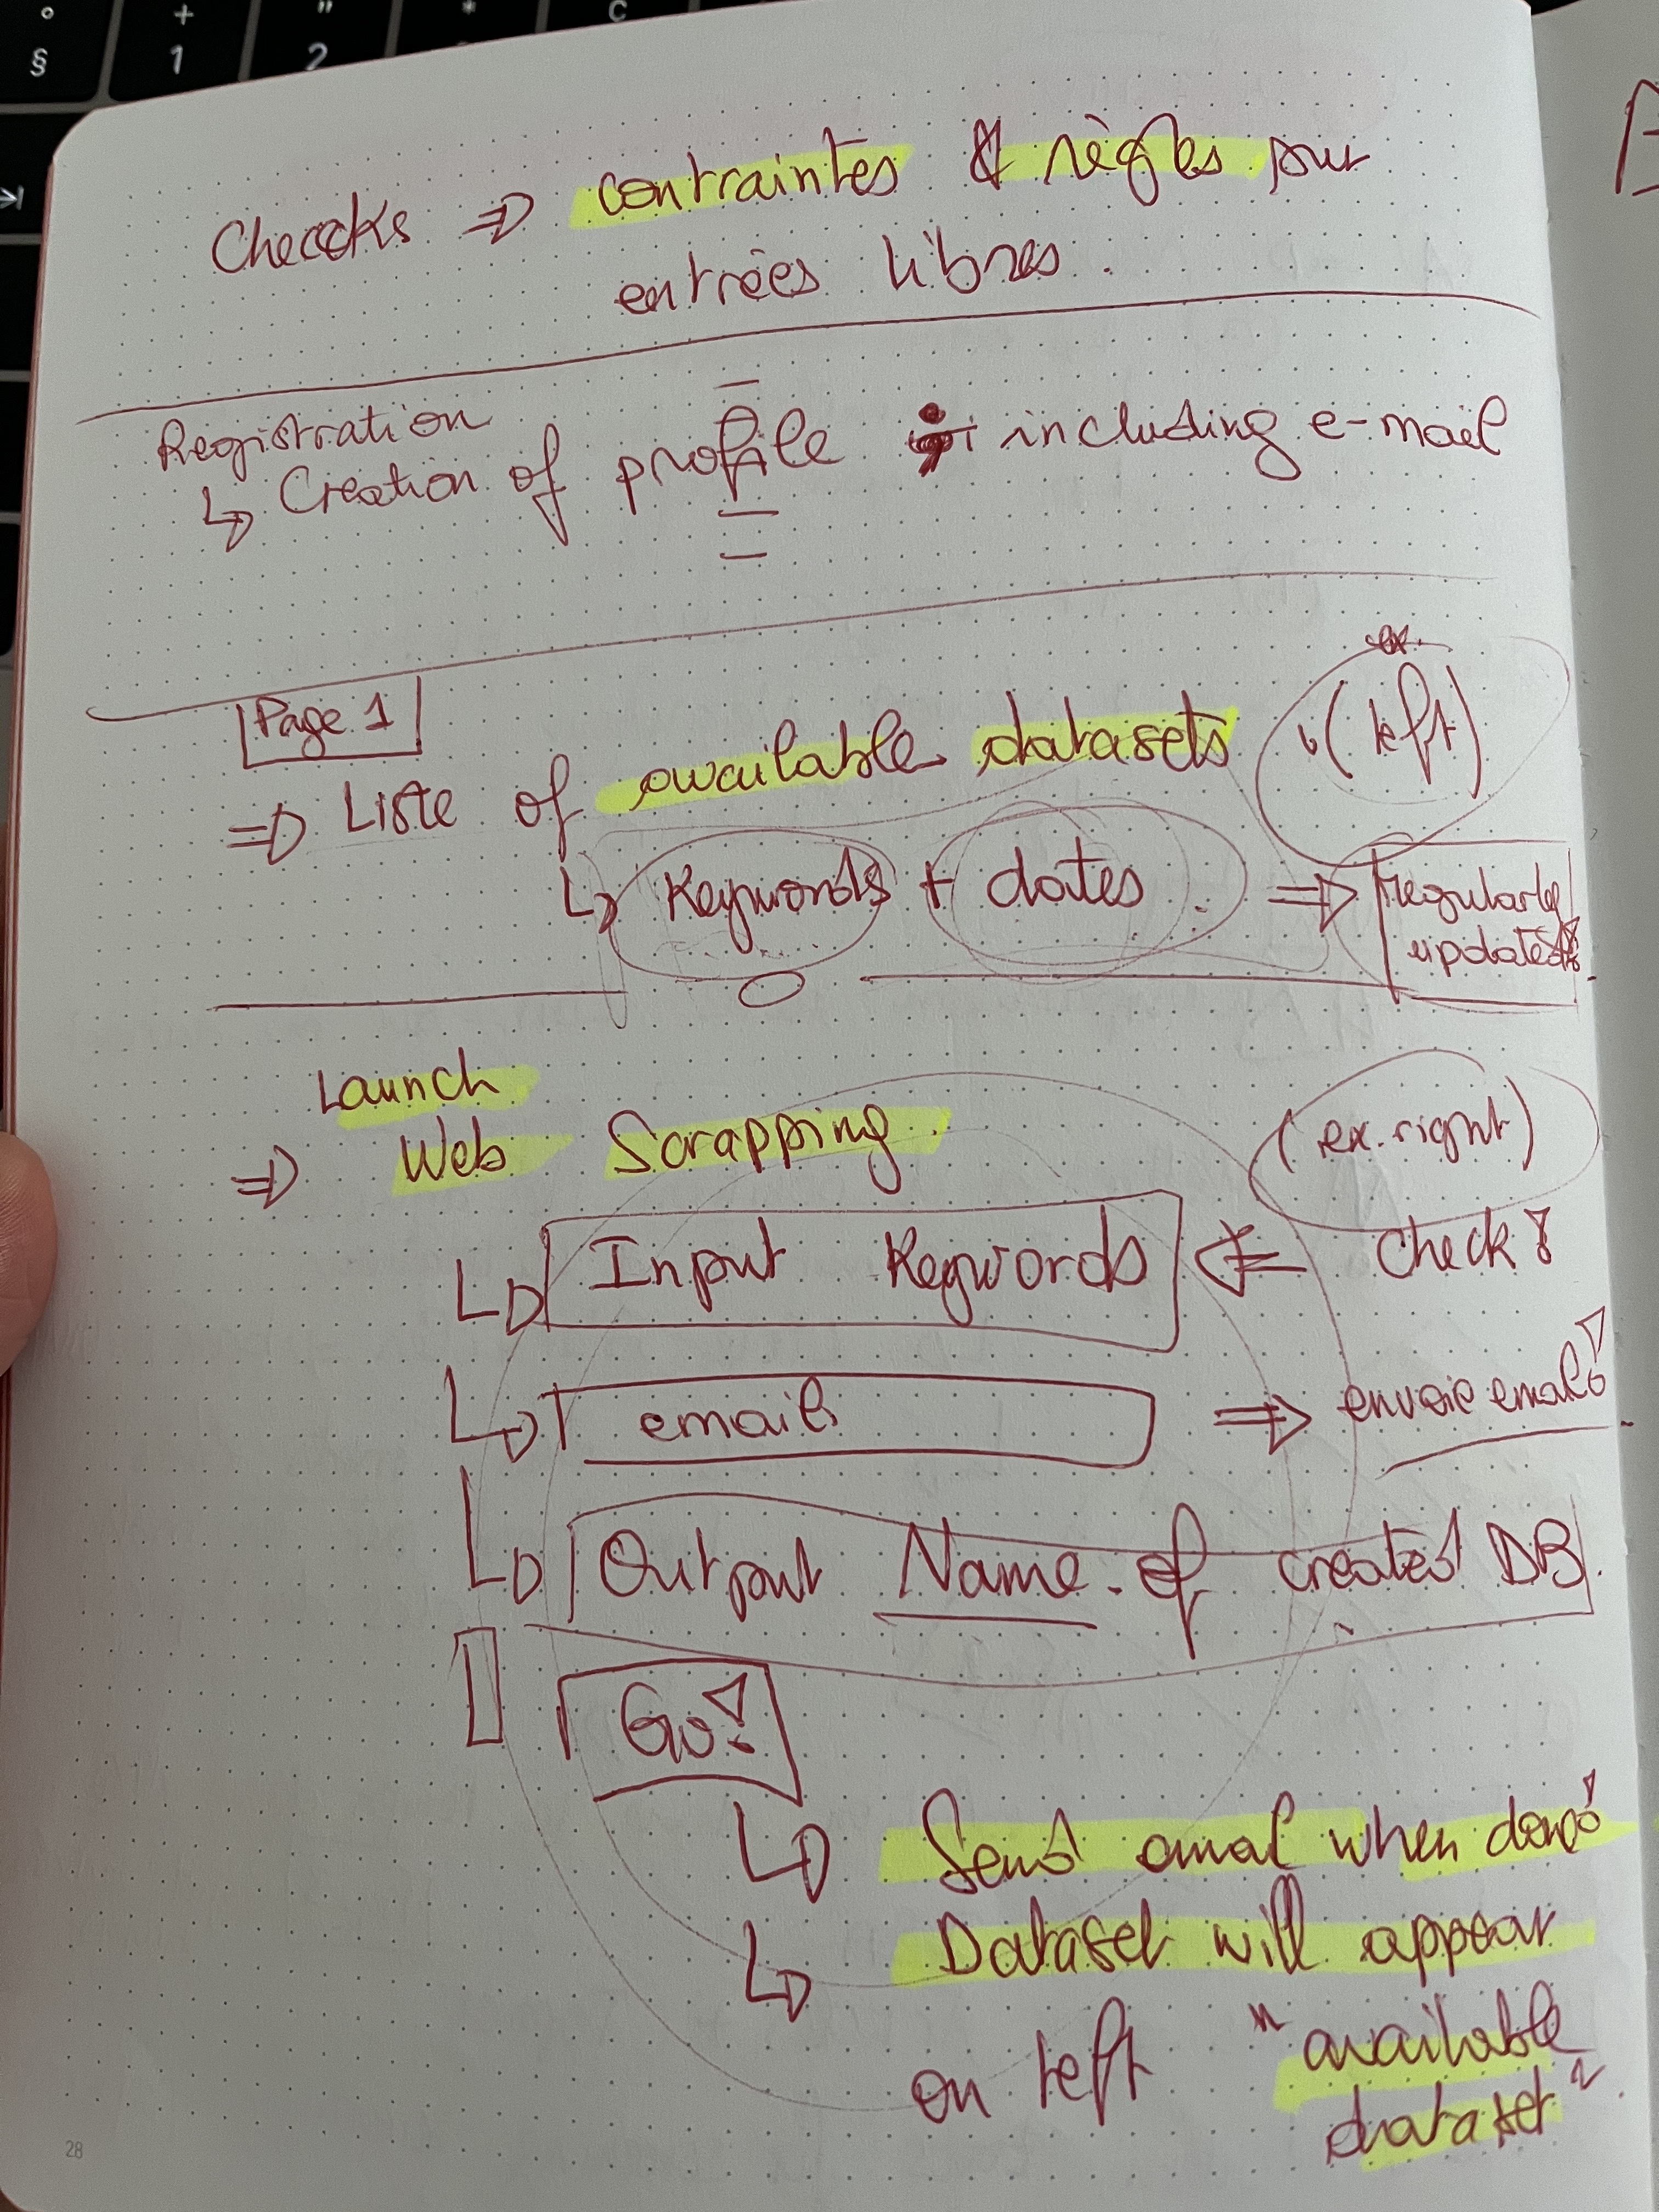 ° + " * Ç
§ 1 2
Checcks ⇒ contraintes & règles pour
entrées libres.
Registration
↳ Creation of profile including e-mail
Page 1
ex.
(left)
⇒ Liste of available datasets
↳ Keywords + dates ⇒ regularly
updated
Launch
⇒ Web Scrapping (ex. right)
↳ Input Keywords ⇐ check!
↳ email ⇒ envoie email!
↳ Output Name of created DB
Go!
↳ Send email when done!
↳ Dataset will appear
on left "available
dataset"
28